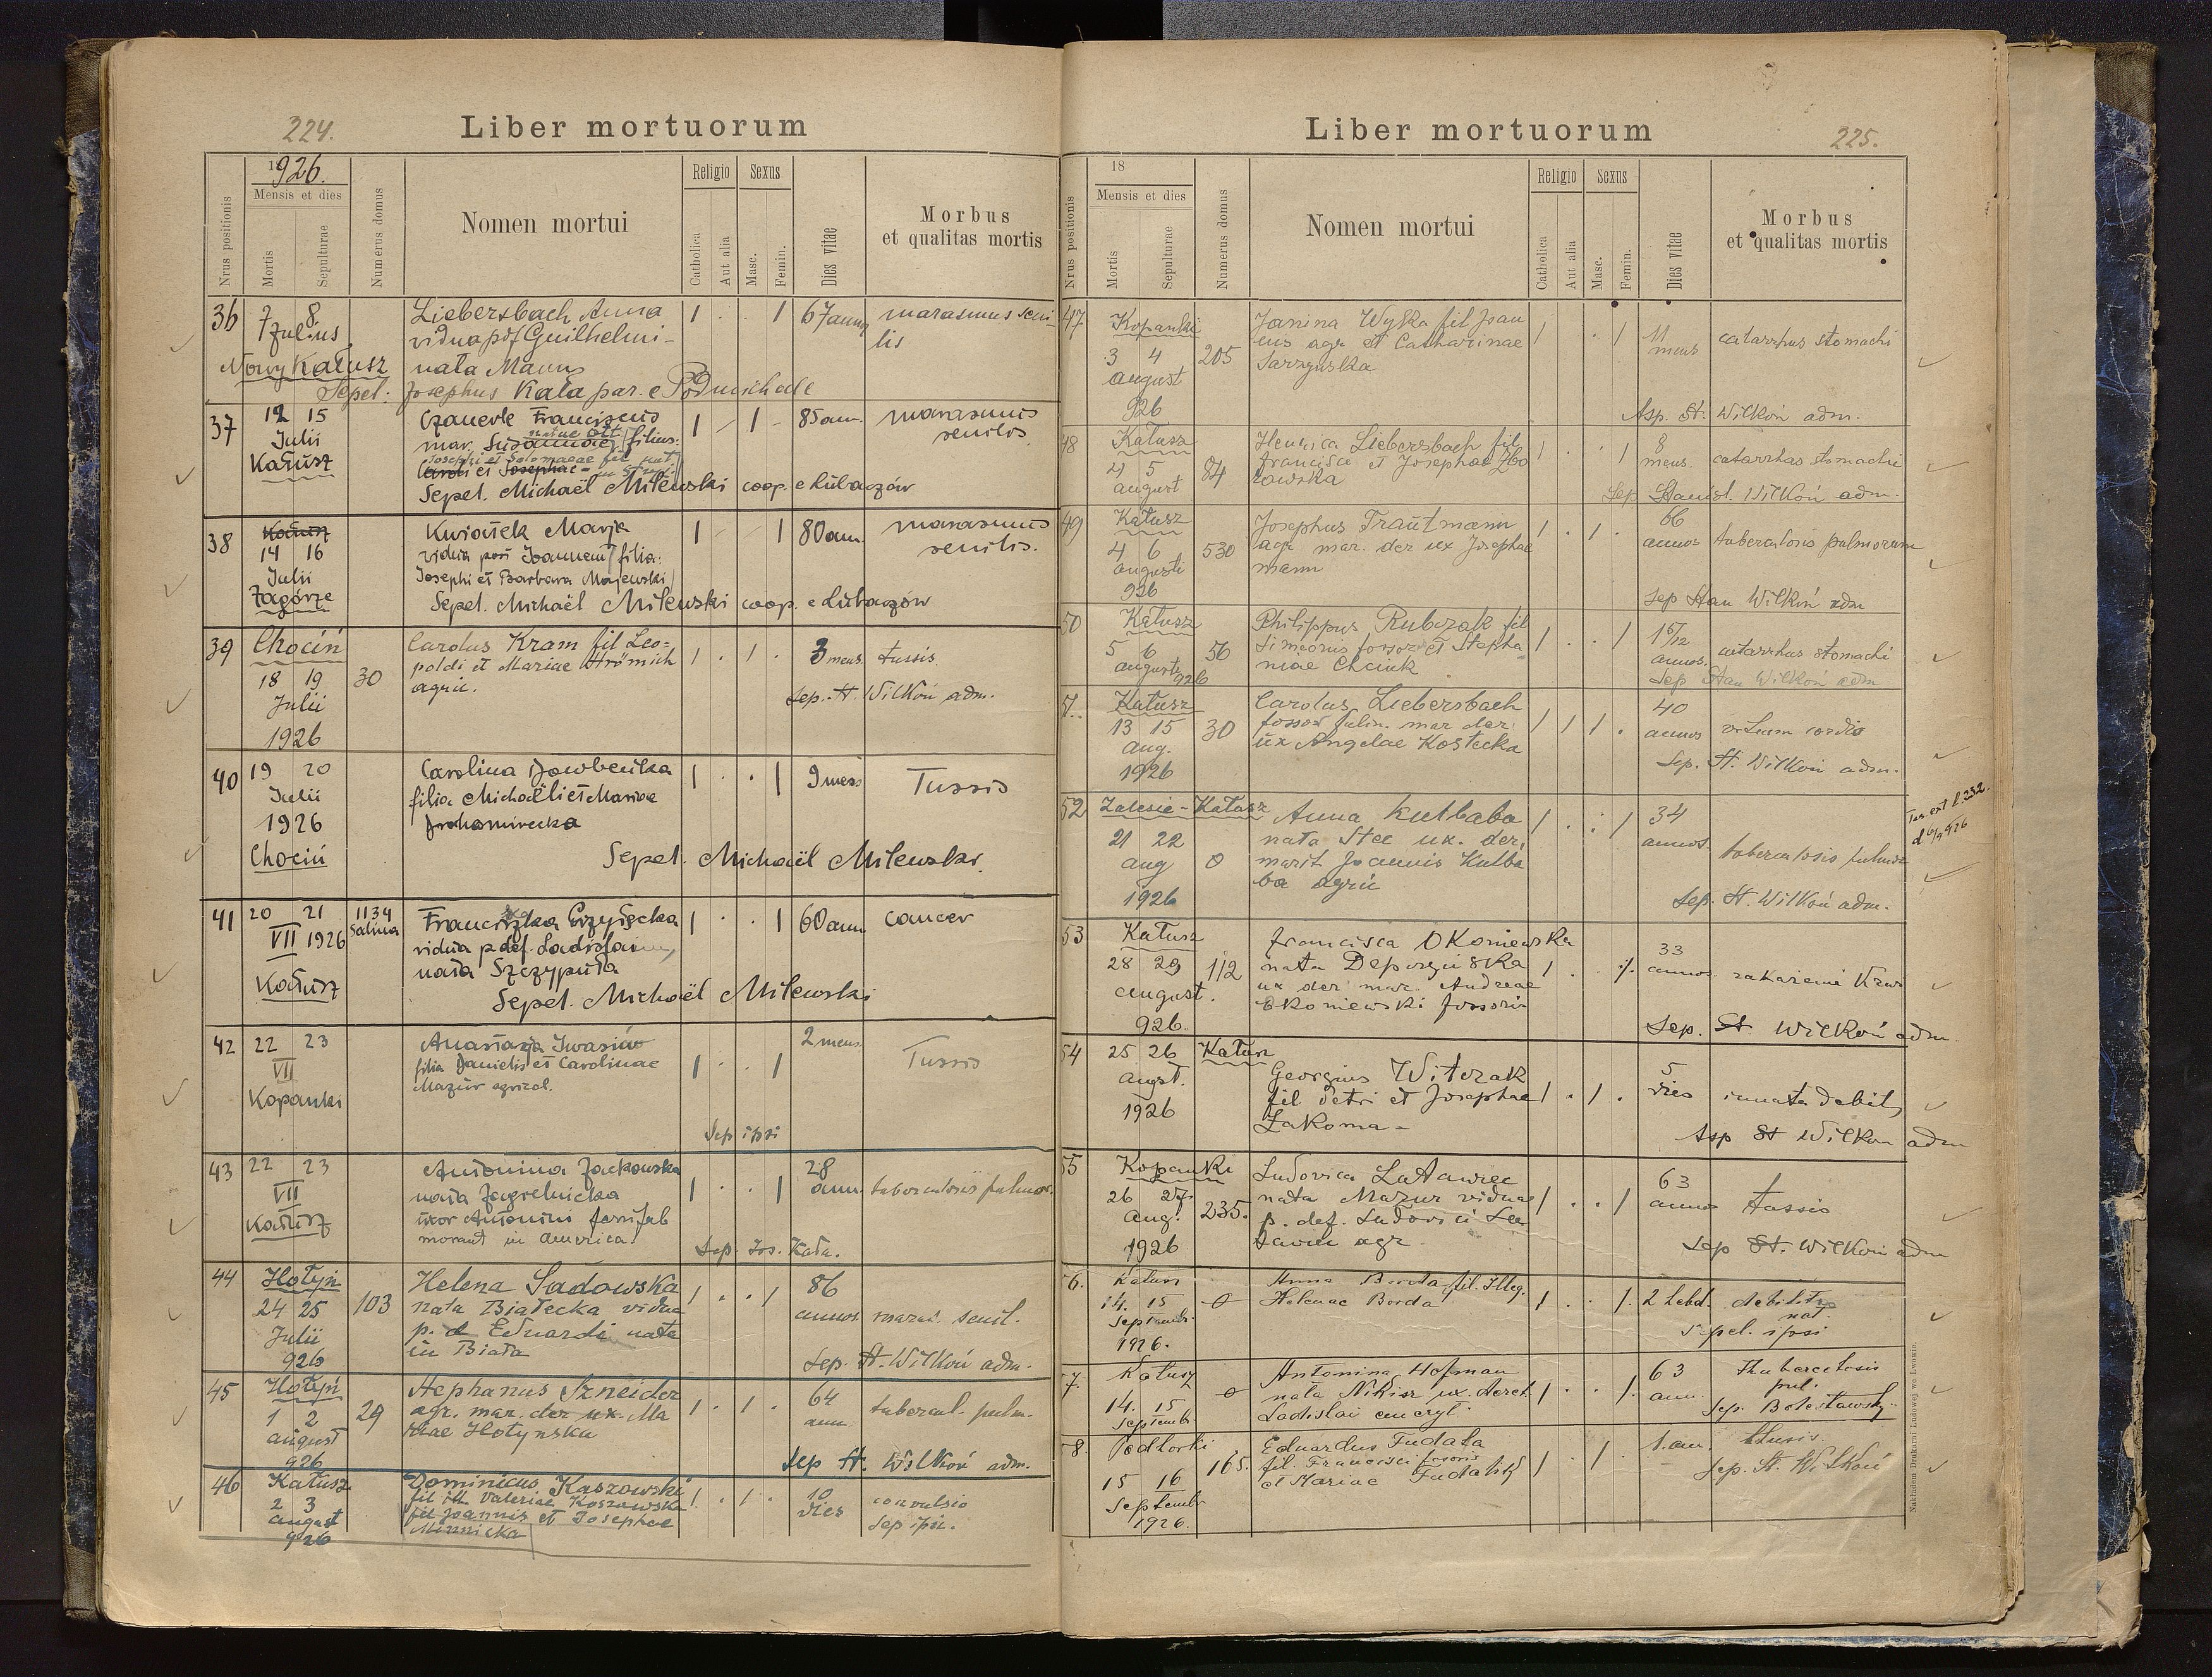 224.
Liber mortuorum
1926.
Mensis et dies
Nrus positionis
Mortis
Sepulturae
Numerus domus
Nomen mortui
Religio
Sexus
Catholica
Aut alia
Masc.
Femin.
Dies vitae
Morbus
et qualitas mortis
36 7 8 Liebersbach Anna 1 . . 1 67 ann marasmus seni-
Julius vidua p df Guilhelmi - lis
Nowy Kałusz nata Mann
Sepel: Josephus Kała par. e Podmichale
37 12 15 Franciscus 1 - 1 - 85 ann. marasmus
Julii mar. Susannae filius: senilis.
Kałusz Josephi et Salomeae
Caroli et Josephae
Sepel. Michaël Milewski coop. e Lubaczów
38 Kałusz Kwiatek Marja 1 - 1 80 ann. marasmus
14 16 vidua post Joannem / filia: senilis.
Julii Josephi et Barbara Majewski /
Zagórze Sepel. Michaël Milewski coop. e Lubaczów
39 Chocin Carolus Kram fil Leo= 1 . 1 . 3 mens. tussis
18 19 30 poldi et Mariae
Julii agric. Sep. St. Wilkoń adm.
1926
40 19 20 Carolina 1 . . 1 9 mens Tussis
Julii filia Michaëli et Mariae
1926
Chocin Sepel. Michaël Milewski.
41 20 21 1134 Franciszka 1 . . 1 60 ann cancer
VII 1926 Salina vidua p. def. Ladislaum,
nata Szczypuła
Kałusz Sepel. Michaël Milewski
42 22 23 Anastazja Iwasiów 1 . . 1 2 mens. Tussis
VII filia Danielis et Carolinae
Kopanki Mazur agricol.
Sep ipsi
43 22 23 Antonina Jackowska 1 . . 1 28
VII nata Zagrelnicka ann. tuberculosis pulmor.
Kałusz uxor Antonini
morant in America. Sep. Jos. Kała.
44 Hołyń Helena Sadowska 1 . . 1 86
24 25 103 nata Białecka vidua annos. maras. senil.
Julii p. d Eduardi nata
926 in Biała Sep. St. Wilkoń adm.
45 Hołyń Stephanus Szneider 1 . 1 . 64
1 2 29 agr. mar. der ux. Ma ann. tubercul. pulm.
august riae Hołynska
926 Sep St. Wilkoń adm.
46 Kałusz Dominicus Kaszowski 1 . 1 . 10
2 3 fil ill. Valeriae Koszowska dies convulsio
august fil Joannis et Josephae Sep ipsi.
926 Minnicka
Liber mortuorum
225.
18
Mensis et dies
Nrus positionis
Mortis
Sepulturae
Numerus domus
Nomen mortui
Religio
Sexus
Catholica
Aut alia
Masc.
Femin.
Dies vitae
Morbus
et qualitas mortis
47 Kopanki Janina Wyłka fil Joan 1 . 1 11
3 4 205 nis agr et Catharinae mens catarrhus stomachi
august
926 Sep. St. Wilkoń adm.
48 Kałusz Henrica Liebersbach fil 1 . . 1 8
4 5 84 Francisci et Josephae Zbo mens. catarrhus stomachi
august Sep Stanisl. Wilkoń adm.
49 Kałusz Josephus Trautmann 1 . 1 . 66
4 6 530 agr mar. der ux Josephae annos tuberculosis pulmorum
augusti mann
926 Sep Stan Wilkoń adm
50 Kałusz Philippus Rubczak fil 1 . . 1 1 5/12
5 6 56 Simeonis fossor et Stepha annos. catarrhus stomachi
augusti 926 niae Sep Stan Wilkoń adm
51. Kałusz Carolus Liebersbach 1 1 1 . 40
13 15 30 fossor salin. mar der annos vitium cordis
aug. ux Angelae Kostecka
1926 Sep. St. Wilkoń adm.
52 Zalesie - Kałusz Anna Kulbaba 1 . . 1 34
21 22 nata Stec ux. der. annos.
aug 0 marit Joannis Kulba tuberculosis pulmor
1926 ba agric Sep. St. Wilkoń adm.
53 Kałusz Francisca Okoniewska 33
28 29 112 nata 1 . . 1. annos zakażenie krwi
august. ux der mar. Andreae
926. Okoniewski fossoris Sep. St. Wilkoń adm.
54 25 26 Kałusz Georgius Witczak 5
August. fil Petri et Josephae 1 . 1 . dies innata debilit
1926 Łakoma - Sep St Wilkoń adm
55 Kopanki Ludovica Latawiec 63
26 27 235. nata Mazur vidua 1 . . 1 annos tussis
Aug. p. def. Ludovici La
1926 tawiec agr Sep St. Wilkoń adm
56. Kałusz Anna Borda fil. Illeg. 1 . . 1. 2 hebd. debilitas
14. 15 0 Helenae Borda nat.
Septemb. Sepel. ipsi
1926.
57. Kałusz Antonina Hofman 63 Thuberculosis
14. 15 0 nata ux. derel. 1 . . 1. ann. pul.
Septemb. Ladislai emeryt. Sep.
58. Podhorki Eduardus Fudala 1. an. thusis.
15 16 165. fil. Francisci fosoris 1 . 1 . Sep. St. Wilkoń
Septembr et Mariae
1926.
Nakładom Drukarni Ludowej we Lwowie.